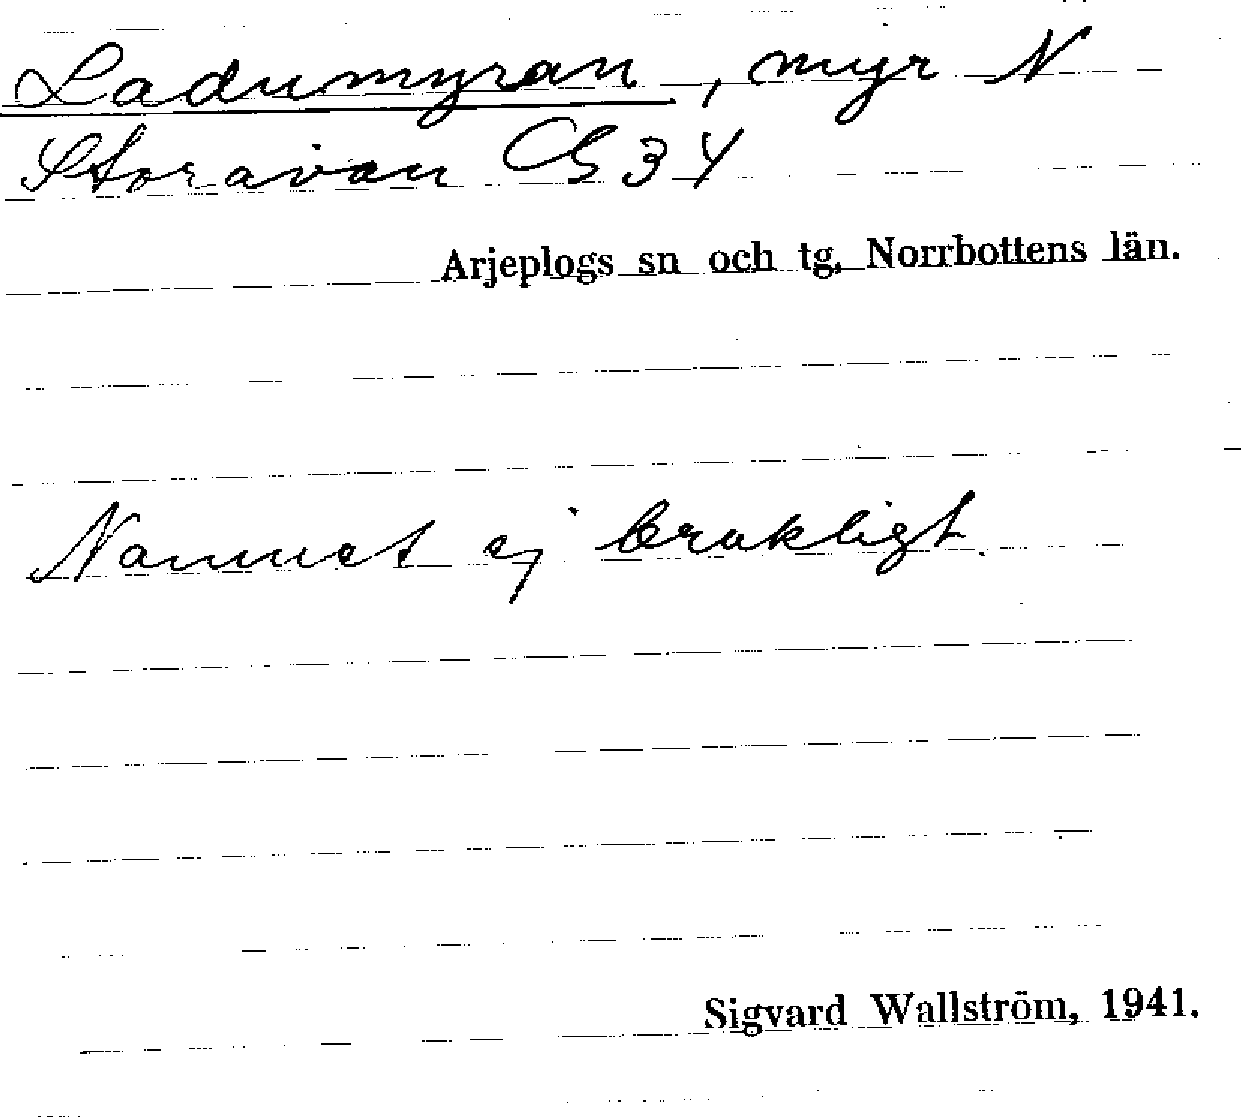 Ladumyran, myr N
Storavan G 3 Y
Arjeplogs sn och tg, Norrbottens län.
Namnet ej brukligt.
Sigvard Wallström, 1941.